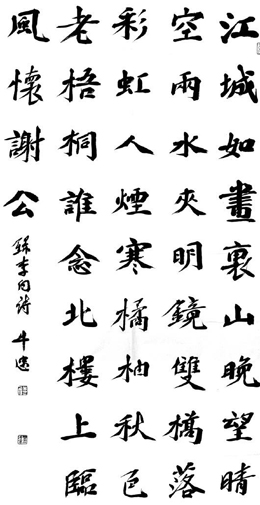 江城如畫裏山晚望晴
空兩水夾明鏡雙橋落
彩虹人煙寒橘柚秋色
老梧桐誰念北樓上臨
風懷謝公
李白詩 牛